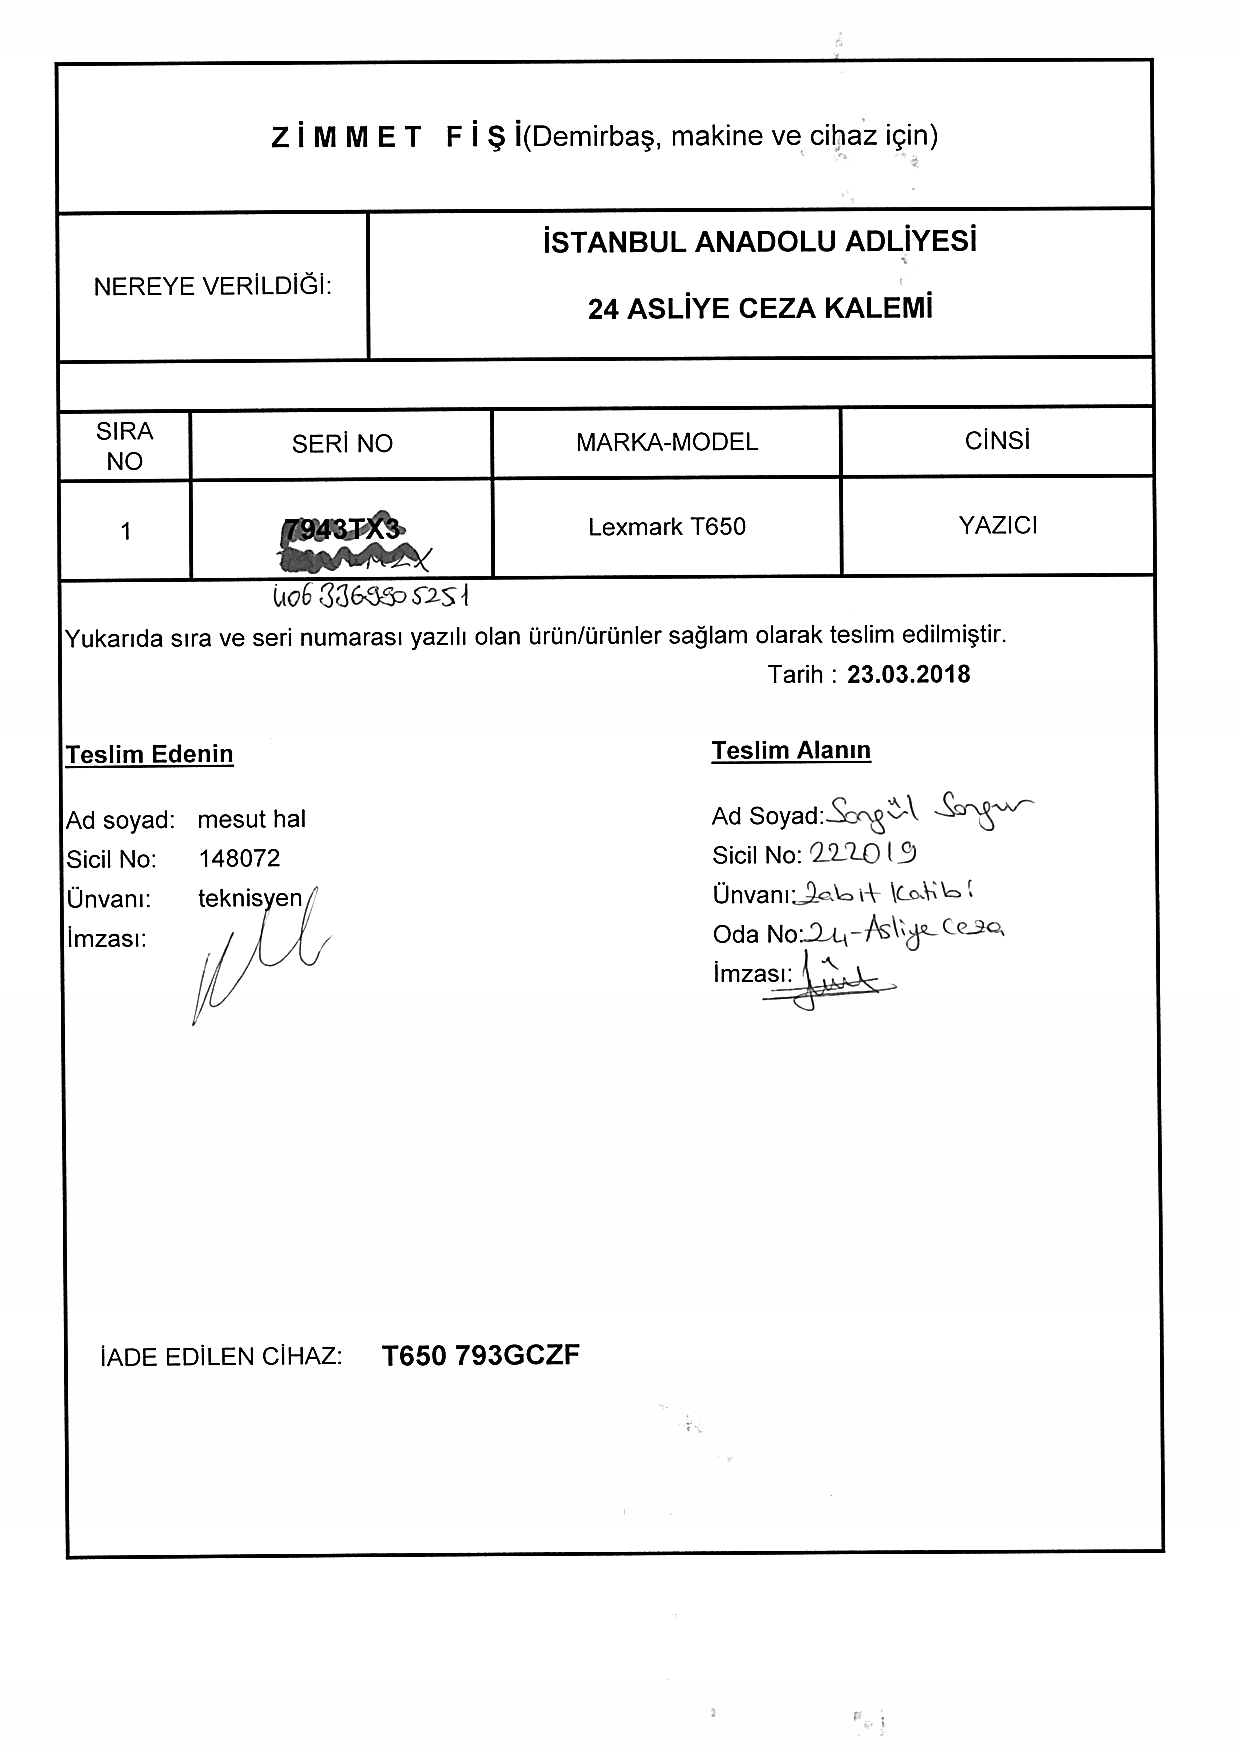 ZİMMET FİŞİ(Demirbaş, makine ve cihaz için)
NEREYE VERİLDİĞİ:
İSTANBUL ANADOLU ADLİYESİ
24 ASLİYE CEZA KALEMİ
SIRA NO
SERİ NO
MARKA-MODEL
CİNSİ
1
7943TX3
Lexmark T650
YAZICI
4063369905251
Yukarıda sıra ve seri numarası yazılı olan ürün/ürünler sağlam olarak teslim edilmiştir.
Tarih : 23.03.2018
Teslim Edenin
Ad soyad: mesut hal
Sicil No: 148072
Ünvanı: teknisyen
İmzası:
Teslim Alanın
Ad Soyad: Songül
Sicil No: 222019
Ünvanı: Zabıt Katibi
Oda No: 24-Asliye Ceza
İmzası:
İADE EDİLEN CİHAZ: T650 793GCZF